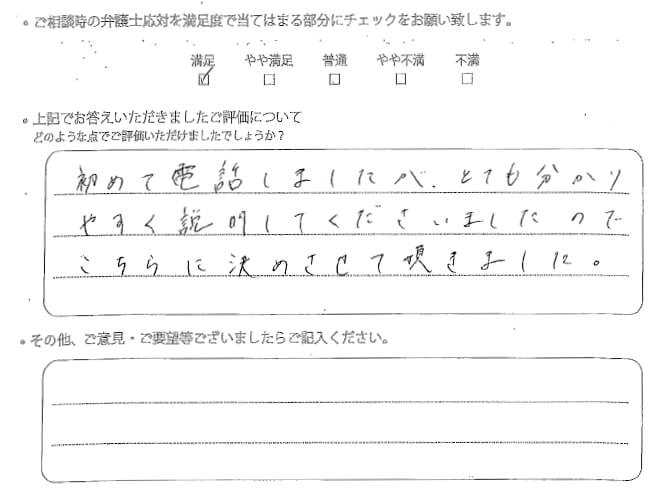 • ご相談時の弁護士応対を満足度で当てはまる部分にチェックをお願い致します。
満足 やや満足 普通 やや不満 不満
☑ ☐ ☐ ☐ ☐
• 上記でお答えいただきましたご評価について
どのような点でご評価いただけましたでしょうか？
初めて電話しましたが、とても分かり
やすく説明してくださいましたので
こちらに決めさせて頂きました。
• その他、ご意見・ご要望等ございましたらご記入ください。